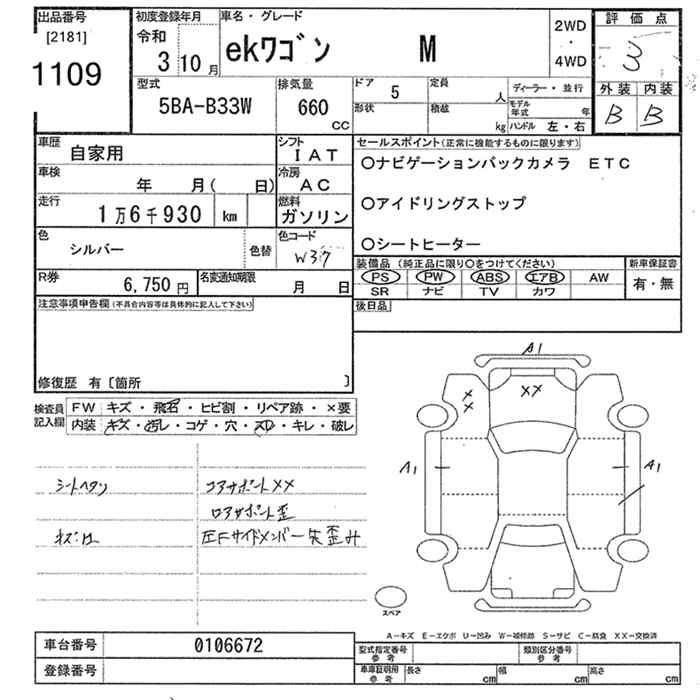 出品番号
[2181]
1109
初度登録年月
令和
3 10月
車名・グレード
ekワゴン M
2WD
・
4WD
評価点
3
外装 内装
B B
型式
5BA-B33W
排気量
660
CC
ドア 5
形状
定員 人
積載 kg
ディーラー・並行
モデル年式 年
ハンドル 左・右
車歴 自家用
シフト IAT
車検 年 月( 日)
冷房 AC
走行 1万6千930 km
燃料 ガソリン
色 シルバー
色替
色コード W37
R券 6,750円
名変通知期限 月 日
セールスポイント(正常に機能するものに限ります)
○ナビゲーションバックカメラ ETC
○アイドリングストップ
○シートヒーター
装備品(純正品に限り○をつけてください)
PS PW ABS エアB AW
SR ナビ TV カワ
新車保証書
有・無
後日品
注意事項申告欄(不具合内容等は具体的に記入して下さい)
修復歴 有〔箇所 〕
検査員記入欄
FW キズ・飛石・ヒビ割・リペア跡・×要
内装 キズ・汚レ・コゲ・穴・スレ・キレ・破レ
シートヘタリ
コアサポートXX
ロアサポート歪
ネズロ
左Fサイドメンバー先歪み
A1
XX
X
X
A1
A1
スペア
A-キズ E-エクボ U-凹み W-補修跡 S-サビ C-腐食 XX-交換済
車台番号 0106672
登録番号
型式指定番号
参考
類別区分番号
参考
車車証明用
参考
長さ cm
幅 cm
高さ cm